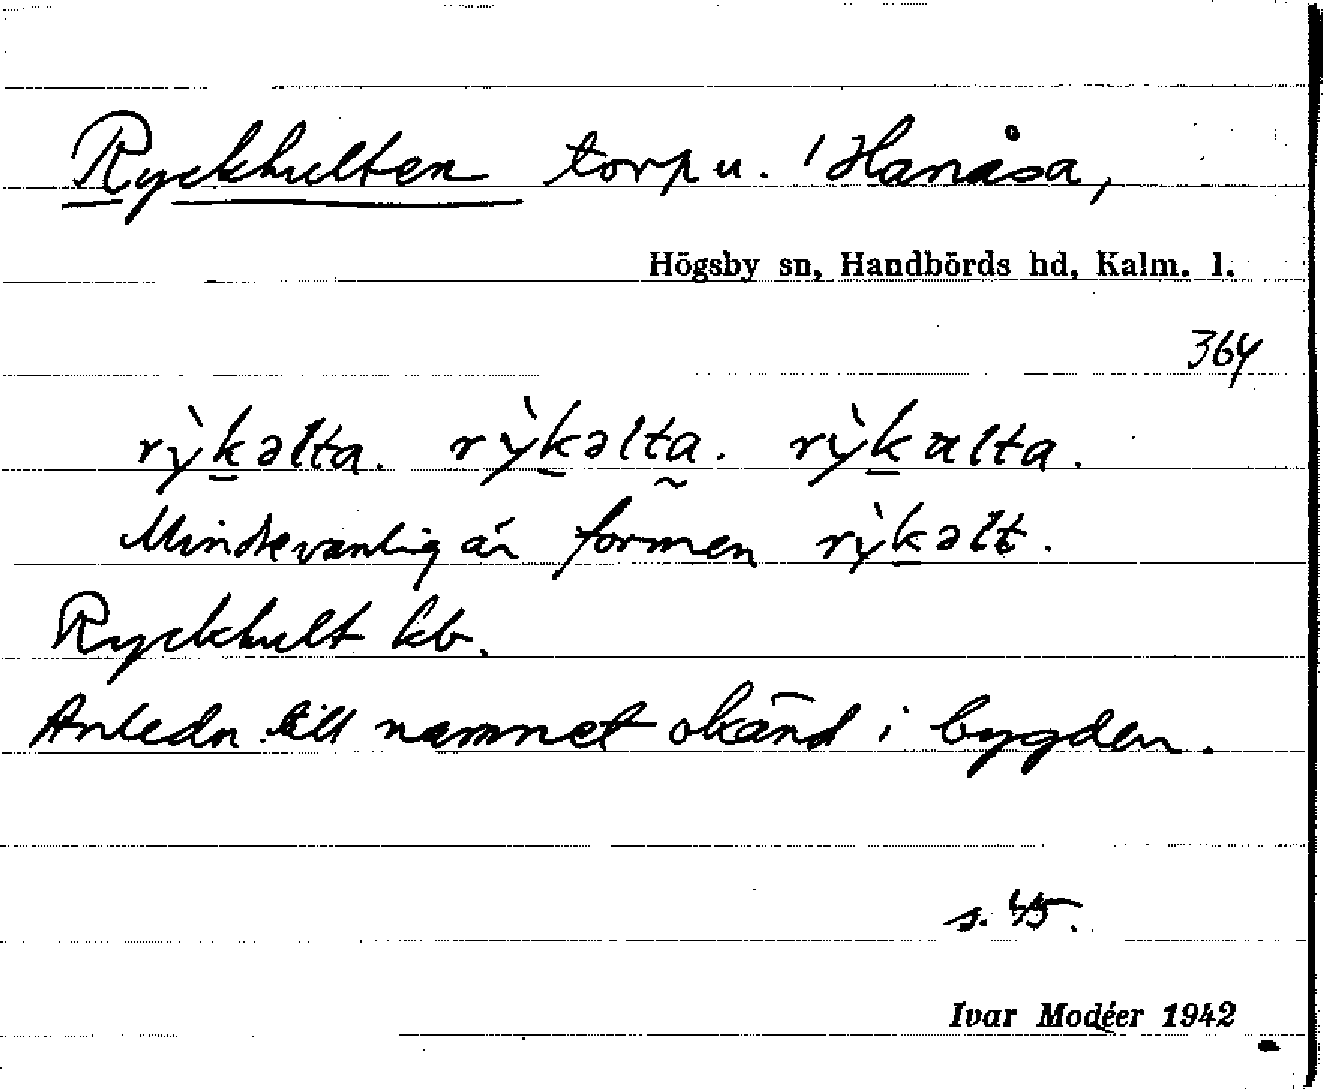 Ryckhulten torp u. 1 Hanåsa,
Högsby sn, Handbörds hd, Kalm. l.
364
rỳk̲əlta. rỳk̲əlta̰. rỳk̲alta.
Mindre vanlig är formen rỳk̲əlt.
Ryckhult kb.
Anledn till namnet okänd i bygden.
s. 45.
Ivar Modéer 1942